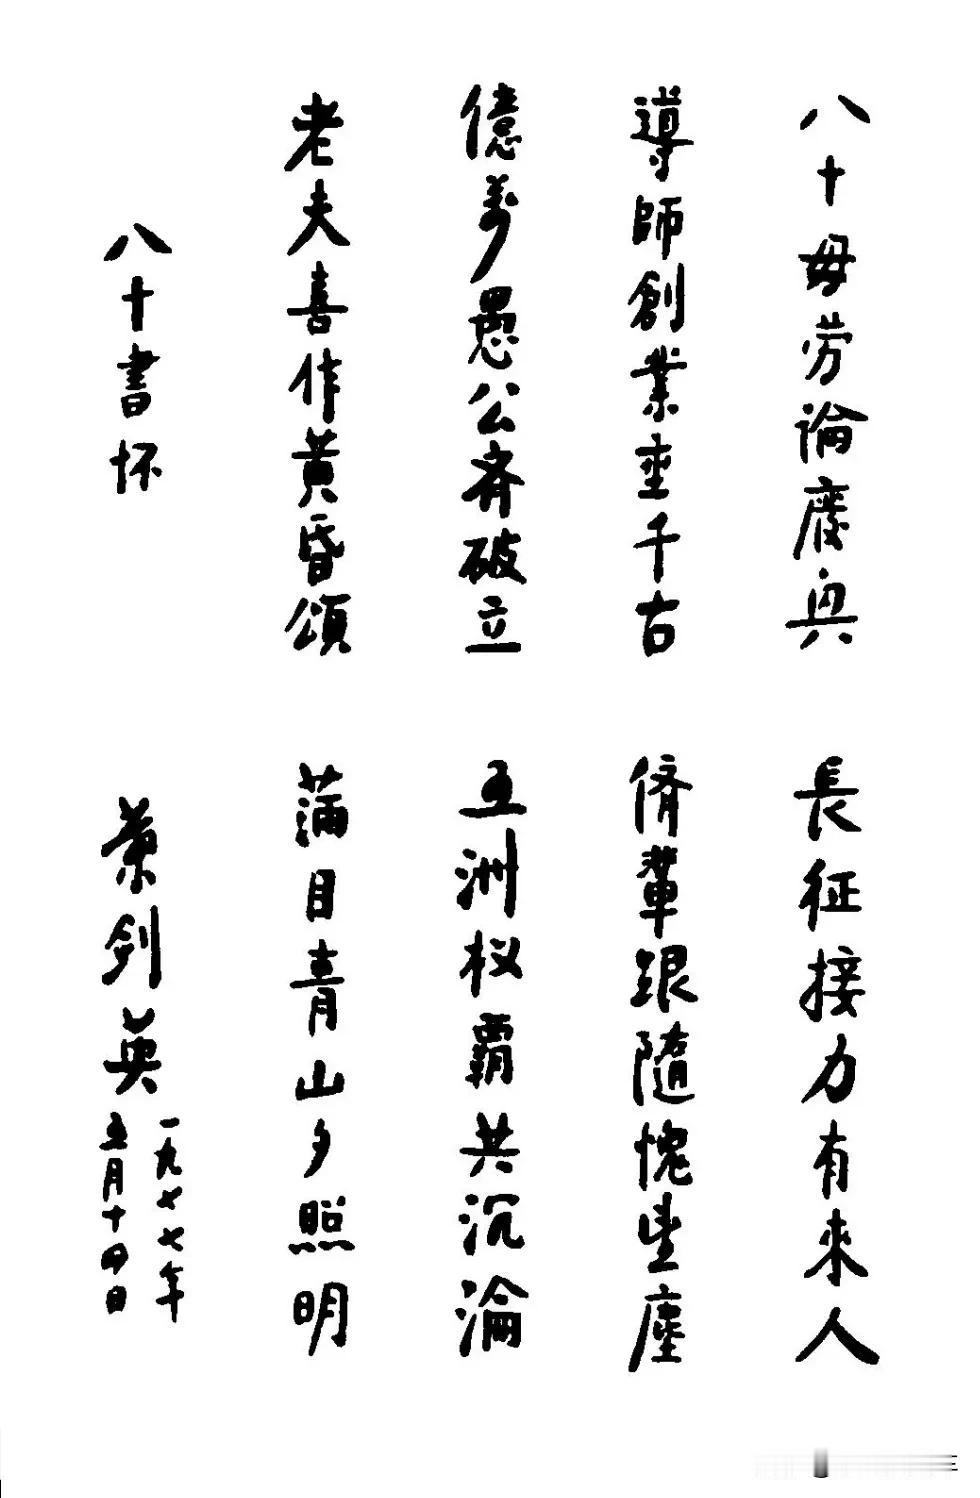 八十毋劳論廢興 長征接力有來人
導師創業垂千古 儕輩跟隨愧望塵
億萬愚公齊破立 五洲权霸共沉淪
老夫喜作黃昏頌 滿目青山夕照明
八十書怀 葉剑英
一九七七年
五月十四日